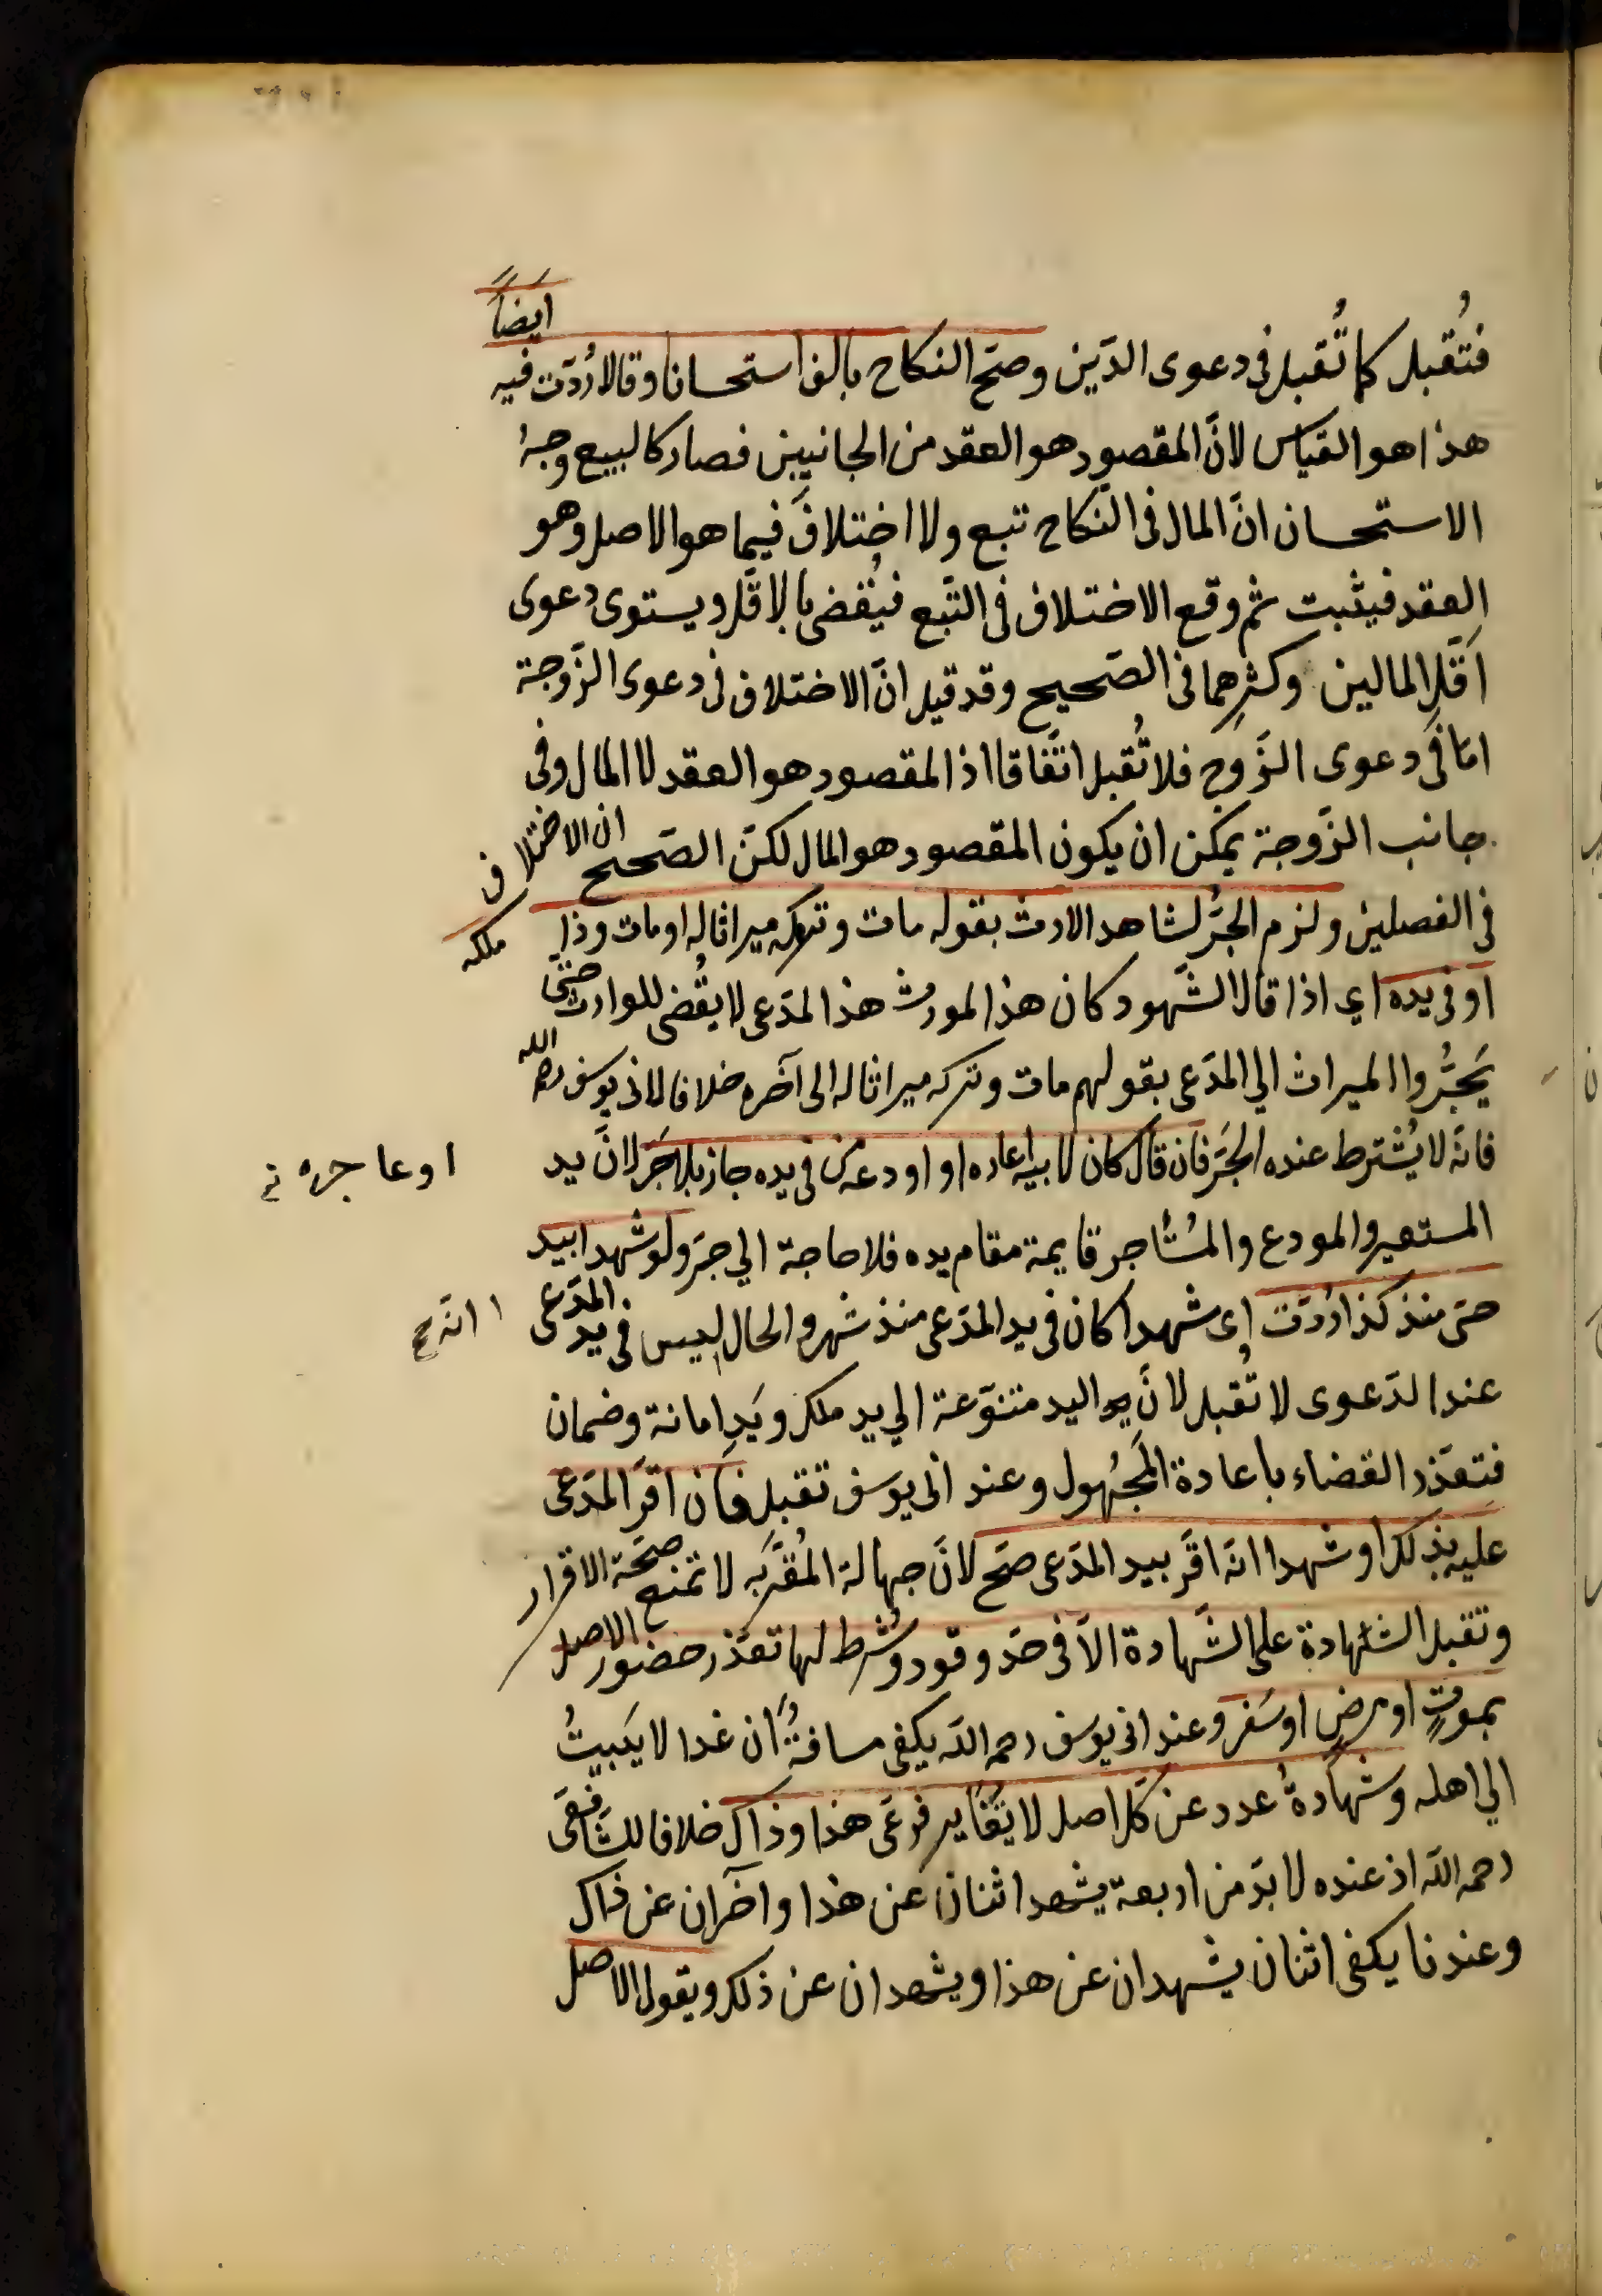 فتُقبل كما تُقبل فى دعوى الدَين وصحّ النكاح بالف استحسانا وقالا رُدّت فيه ايضاً
هذا هو القياس لانّ المقصود هو العقد من الجانبين فصار كالبيع وجهُ
الاستحسان انّ المال فى النّكاح تبع ولا اختلافَ فيما هو الاصل وهو
العقد فيثبت ثم وقع الاختلاف فى التّبع فيُقضى بالاقلّ ويستوى دعوى
اقلّ المالين وكثرهما فى الصّحيح وقد قيل انّ الاختلاف فى دعوى الزّوجة
امّا فى دعوى الزّوج فلا تُقبل اتّفاقا اذ المقصود هو العقد لا المال وفى
جانب الزّوجة يمكن ان يكون المقصود هو المال لكنّ الصّحيح ان الاختلاف
فى الفصلين ولزم الجرُّ لشاهد الارث بقوله مات وتركه ميراثا له او مات وذا ملكه
او فى يده اي اذا قال الشّهود كان هذا لمورث هذا لمدّعى لا يقُضى للوارث حتّى
يَجُرُّوا الميراث الي المدّعى بقولهم مات وتركه ميراثا له الى آخره خلافا لابى يوسف رحمه الله
فانّه لا يُشترط عنده الجَرّ فان قال كان لابيه اعاره او اودعه من فى يده جاز بلا جَرّ لانّ يد
او عا جره نه
المستعير والمودع والمُستأجر قايمة مقام يده فلا حاجة الي جرّ ولو شهدا بيد
حىّ منذ كذا رُدّت اى شهدا كان فى يد المدّعى منذ شهر والحال ليس فى يد المدّعى
ا انّه ع
عند الدّعوى لا تُقبل لانّ اليد متنوّعة الي يد ملك ويَدِ امانة وضمان
فتعذّر القضاء باعادة المَجهُول وعند ابى يوسف تقبل فان اقرّ المدّعى
عليه بذلك او شهدا انّه اقرّ بيد المدّعى صحّ لانّ جهالة المُقَرّ به لا تمنع صحّة الاقرار
وتقبل الشّهادة على الشّهادة الاّ فى حدّ وقود وشُرط لها تعذّر حضور الاصل
بموتٍ او مرضٍ او سَفرٍ وعند ابى يوسف رحمه اللّه يكفى مسافةٌ ان غدا لا يَبيتُ
الي اهله وشهادةُ عدد عن كلّ اصل لا تَغاير فرعَى هذا وذاك خلافا للشّافعى
رحمه اللّه اذ عنده لا بدّ من اربعة يشهد اثنان عن هذا وآخران عن ذاك
وعندنا يكفى اثنان يشهدان عن هذا ويشهدان عن ذلك ويقول الاصل